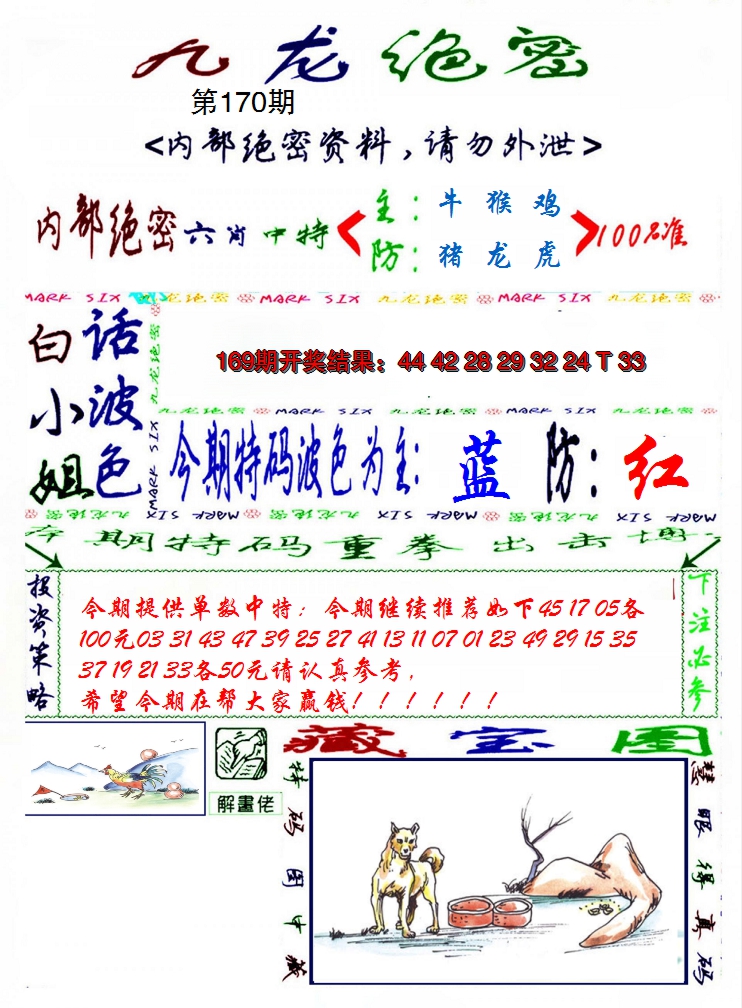 九龙绝密
第170期
<内部绝密资料,请勿外泄>
内部绝密六肖中特
主:牛 猴 鸡
防:猪 龙 虎
100%准
MARK SIX 九龙绝密 MARK SIX 九龙绝密 MARK SIX 九龙绝密
白小姐
话波色
九龙绝密
MARK SIX
169期开奖结果：44 42 28 29 32 24 T 33
九龙绝密 MARK SIX 九龙绝密 MARK SIX 九龙绝密
今期特码波色为主: 蓝 防: 红
九龙绝密 MARK SIX 九龙绝密 MARK SIX 九龙绝密 MARK SIX
本期特码重拳出击博
投资策略
今期提供单数中特；今期继续推荐如下45 17 05各
100元03 31 43 47 39 25 27 41 13 11 07 01 23 49 29 15 35
37 19 21 33各50元请认真参考,
希望今期在帮大家赢钱！！！！！！
下注必参
解畫佬
藏宝图
特码图中藏
慧眼得真码